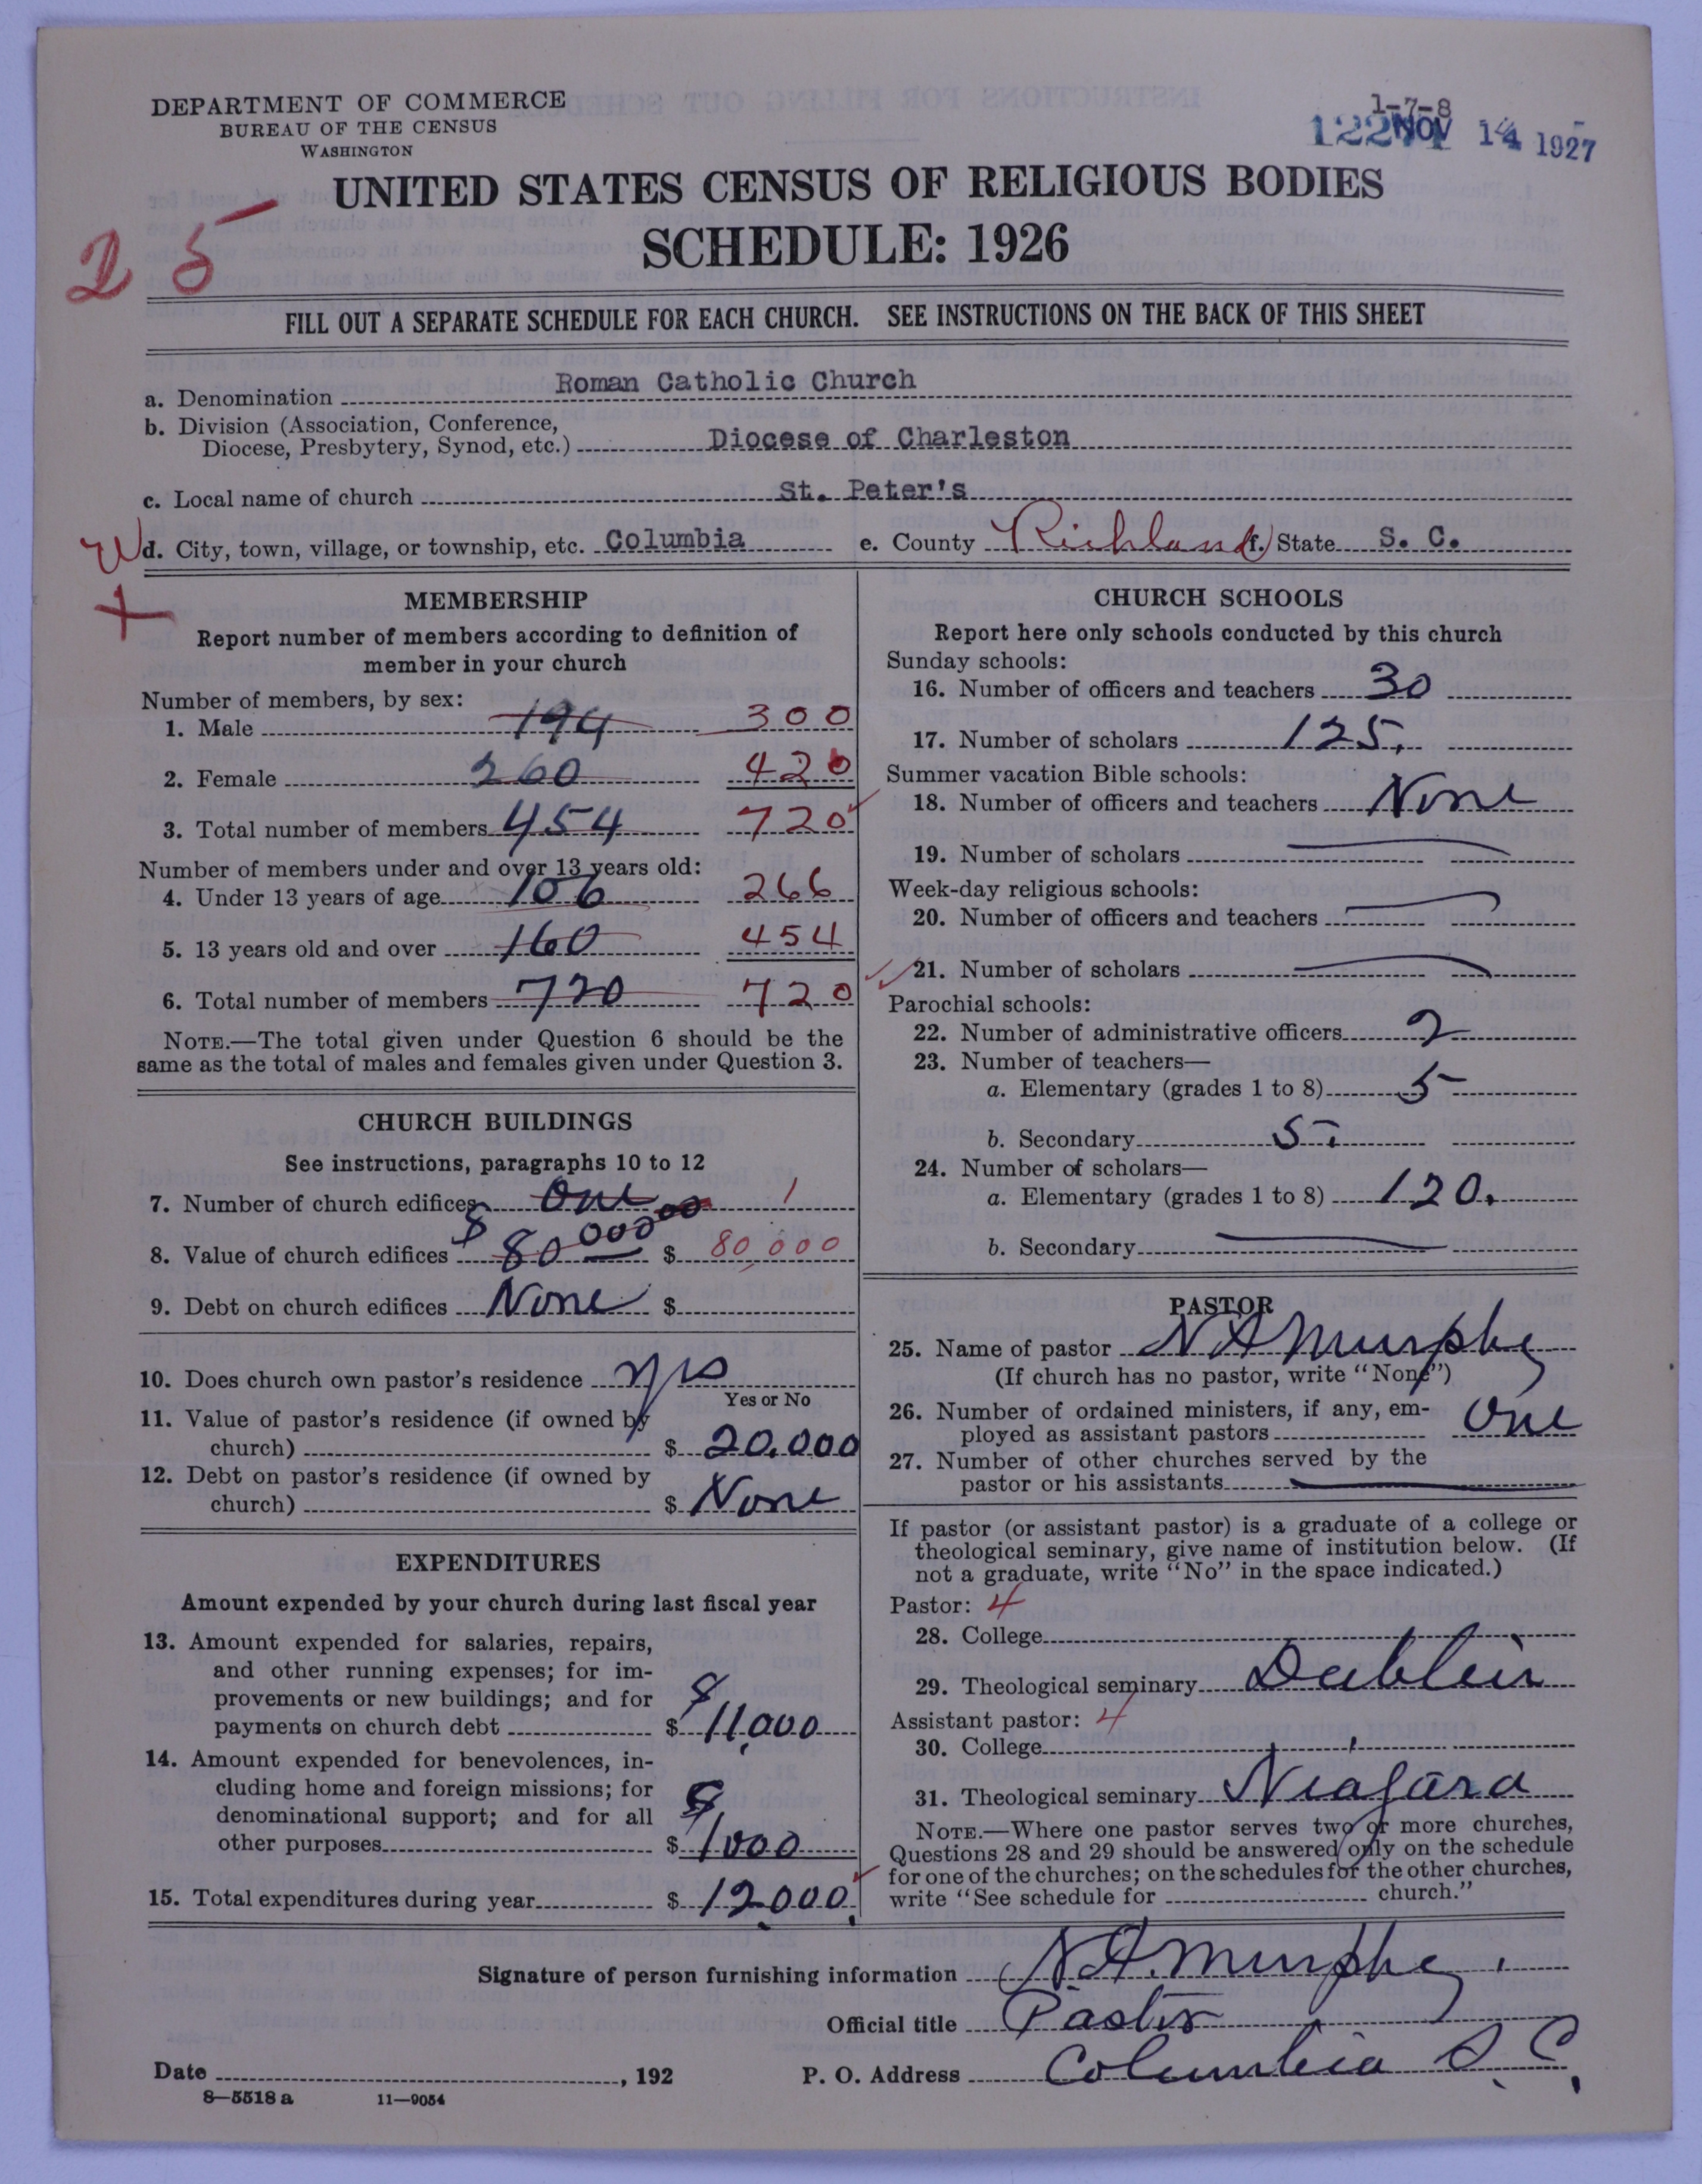 DEPARTMENT OF COMMERCE
BUREAU OF THE CENSUS
WASHINGTON
1-7-8
NOV 14 1927
UNITED STATES CENSUS OF RELIGIOUS BODIES
SCHEDULE: 1926
25
FILL OUT A SEPARATE SCHEDULE FOR EACH CHURCH. SEE INSTRUCTIONS ON THE BACK OF THIS SHEET
a. Denomination Roman Catholic Church
b. Division (Association, Conference,
Diocese, Presbytery, Synod, etc.) Diocese of Charleston
c. Local name of church St. Peter's
d. City, town, village, or township, etc. Columbia e. County Richland f. State S. C.
MEMBERSHIP
Report number of members according to definition of
member in your church
Number of members, by sex:
1. Male 194 300
2. Female 260 420
3. Total number of members 454 720
Number of members under and over 13 years old:
4. Under 13 years of age 106 266
5. 13 years old and over 160 454
6. Total number of members 720 720
NOTE.—The total given under Question 6 should be the
same as the total of males and females given under Question 3.
CHURCH BUILDINGS
See instructions, paragraphs 10 to 12
7. Number of church edifices One 1
8. Value of church edifices $ 80 000 00 $ 80,000
9. Debt on church edifices None $
10. Does church own pastor's residence Yes
Yes or No
11. Value of pastor's residence (if owned by
church) $ 20.000
12. Debt on pastor's residence (if owned by
church) $ None
EXPENDITURES
Amount expended by your church during last fiscal year
13. Amount expended for salaries, repairs,
and other running expenses; for im-
provements or new buildings; and for
payments on church debt $ $ 11,000
14. Amount expended for benevolences, in-
cluding home and foreign missions; for
denominational support; and for all
other purposes $ $ 1000
15. Total expenditures during year $ 12.000.
CHURCH SCHOOLS
Report here only schools conducted by this church
Sunday schools:
16. Number of officers and teachers 30
17. Number of scholars 125.
Summer vacation Bible schools:
18. Number of officers and teachers None
19. Number of scholars
Week-day religious schools:
20. Number of officers and teachers
21. Number of scholars
Parochial schools:
22. Number of administrative officers 2
23. Number of teachers—
a. Elementary (grades 1 to 8) 5
b. Secondary 5.
24. Number of scholars—
a. Elementary (grades 1 to 8) 120.
b. Secondary
PASTOR
25. Name of pastor N A Murphy
(If church has no pastor, write "None")
26. Number of ordained ministers, if any, em-
ployed as assistant pastors One
27. Number of other churches served by the
pastor or his assistants
If pastor (or assistant pastor) is a graduate of a college or
theological seminary, give name of institution below. (If
not a graduate, write "No" in the space indicated.)
Pastor: 4
28. College
29. Theological seminary Dublin
Assistant pastor: 4
30. College
31. Theological seminary Niagara
NOTE.—Where one pastor serves two or more churches,
Questions 28 and 29 should be answered only on the schedule
for one of the churches; on the schedules for the other churches,
write "See schedule for church."
Signature of person furnishing information N. A. Murphy.
Official title Pastor
Date , 192 P. O. Address Columbia S. C.
8—5518 a 11—9054